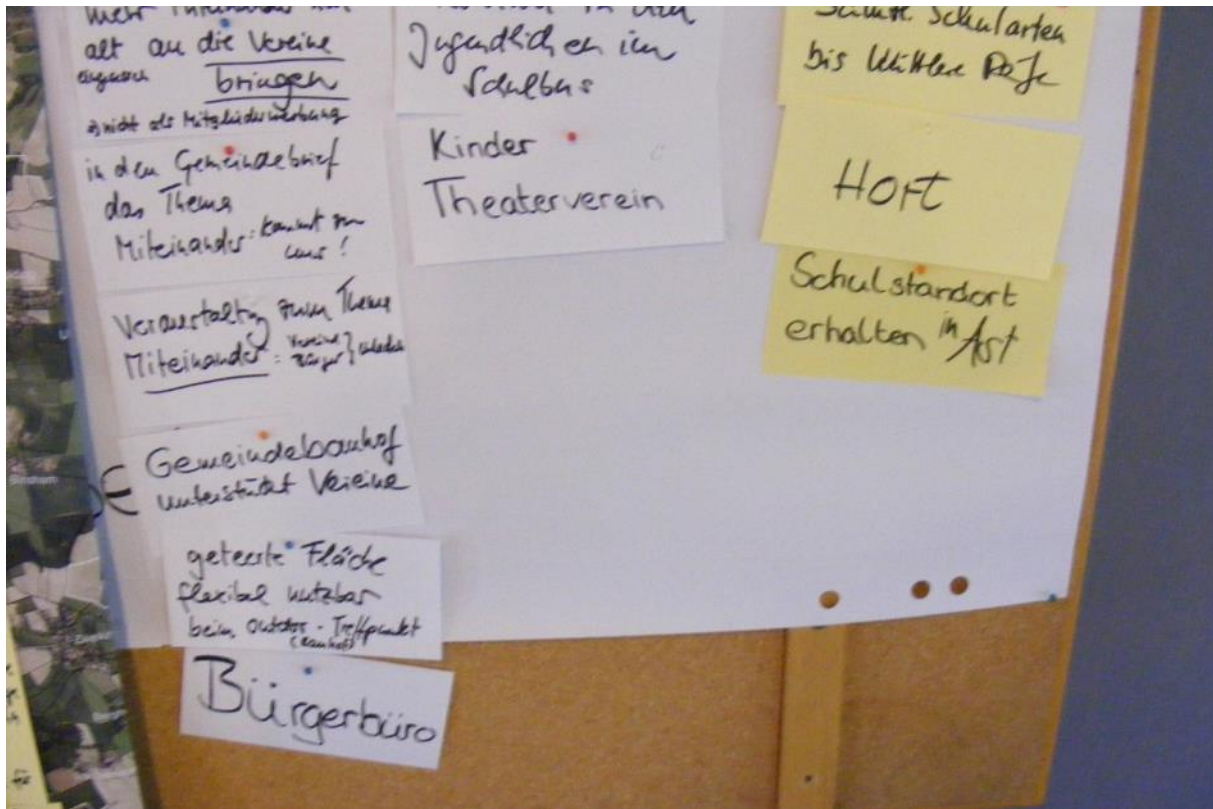 alt an die Vereine
bringen
=> nicht als Mitgliederwerbung
in den Gemeindebrief
das Thema
Miteinander: kommt zu
uns!
Veranstaltung zum Thema
Miteinander = Vereine
Bürger
Gemeindebauhof
unterstützt Vereine
geteerte Fläche
flexibel nutzbar
beim Outdoor-Treffpunkt
(Bauhof)
Bürgerbüro
Jugendlichen im
Schulbus
Kinder
Theaterverein
Schularten
bis Mittlere Reife
HORT
Schulstandort
erhalten in Ast